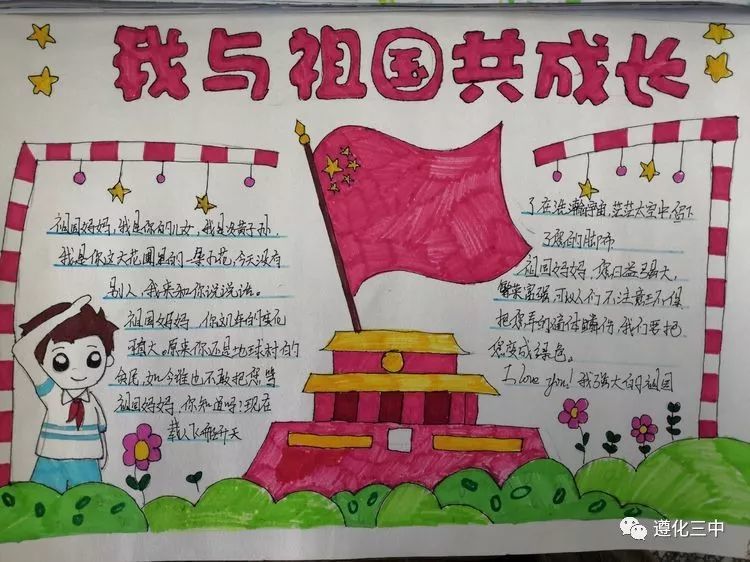 我与祖国共成长
祖国妈妈,我是你的儿女,我是炎黄子孙,
我是你这大花圃里的一朵小花,今天没有
别人,我来和你说说话。
祖国妈妈,你几年的变化
真大。原来你还是地球村的
贫民,如今谁也不敢把您
祖国妈妈,你知道吗?现在
载人飞船升天
了在浩瀚宇宙,茫茫太空中留下
了您的脚印
祖国妈妈,您日益强大,
繁荣富强,可以人们不注意环保
把您弄的遍体鳞伤,我们要把
您变成绿色。
I love you! 我强大的祖国
遵化三中